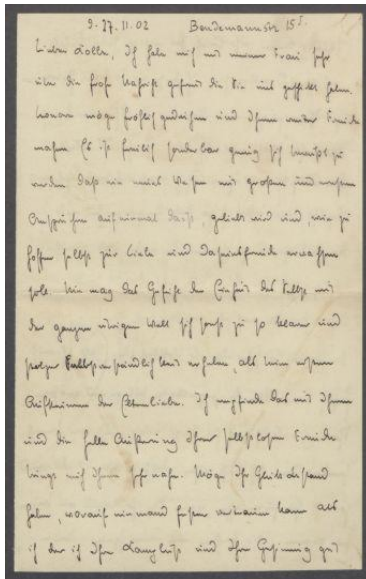 D. 27. 11. 02 Bendemannstr 15 I.
Lieber Kolle, Ich habe mich mit meiner Frau sehr
über die frohe Nachricht gefreut die Sie uns geschickt haben.
möge fröhlich gedeihen und Ihnen weiter Freude
machen. Es ist freilich sonderbar genug sich bewußt zu
werden daß ein neues Wesen mit großen und
Ansprüchen auf einmal da ist, geliebt wird und, wie zu
hoffen selbst zur Liebe und Daseinsfreude erwachsen
soll. Nie mag das Gefühl der Einheit des Selbst mit
der ganzen übrigen Welt sich sonst zu so klarer und
stolzer Selbstverständlichkeit erheben, als beim ersten
Aufkeimen der Elternliebe. Ich empfinde das mit Ihnen
und die helle Äußerung Ihrer selbstlosen Freude
bringt mich Ihnen sehr nahe. Möge Ihr Glück Bestand
haben, worauf niemand fester vertrauen kann als
ich der ich Ihre und Ihre Gesinnung gut